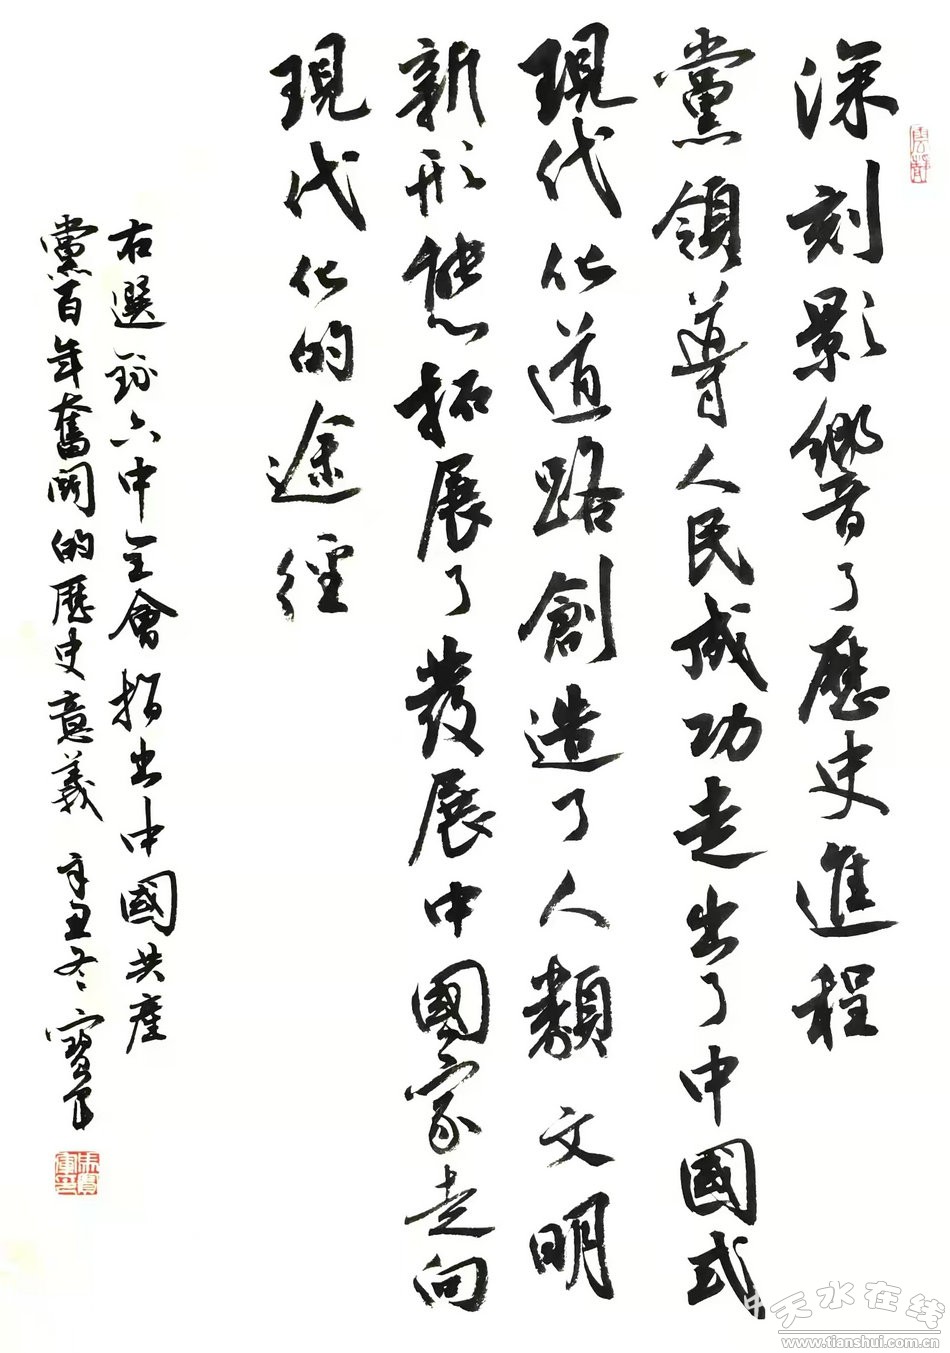 深刻影響了歷史進程
黨領導人民成功走出了中國式
現代化道路創造了人類文明
新形態拓展了發展中國家走向
現代化的途徑
右選錄六中全會指出中國共產
黨百年奮鬥的歷史意義 辛丑冬 寶軍
天水在线
www.tianshui.com.cn